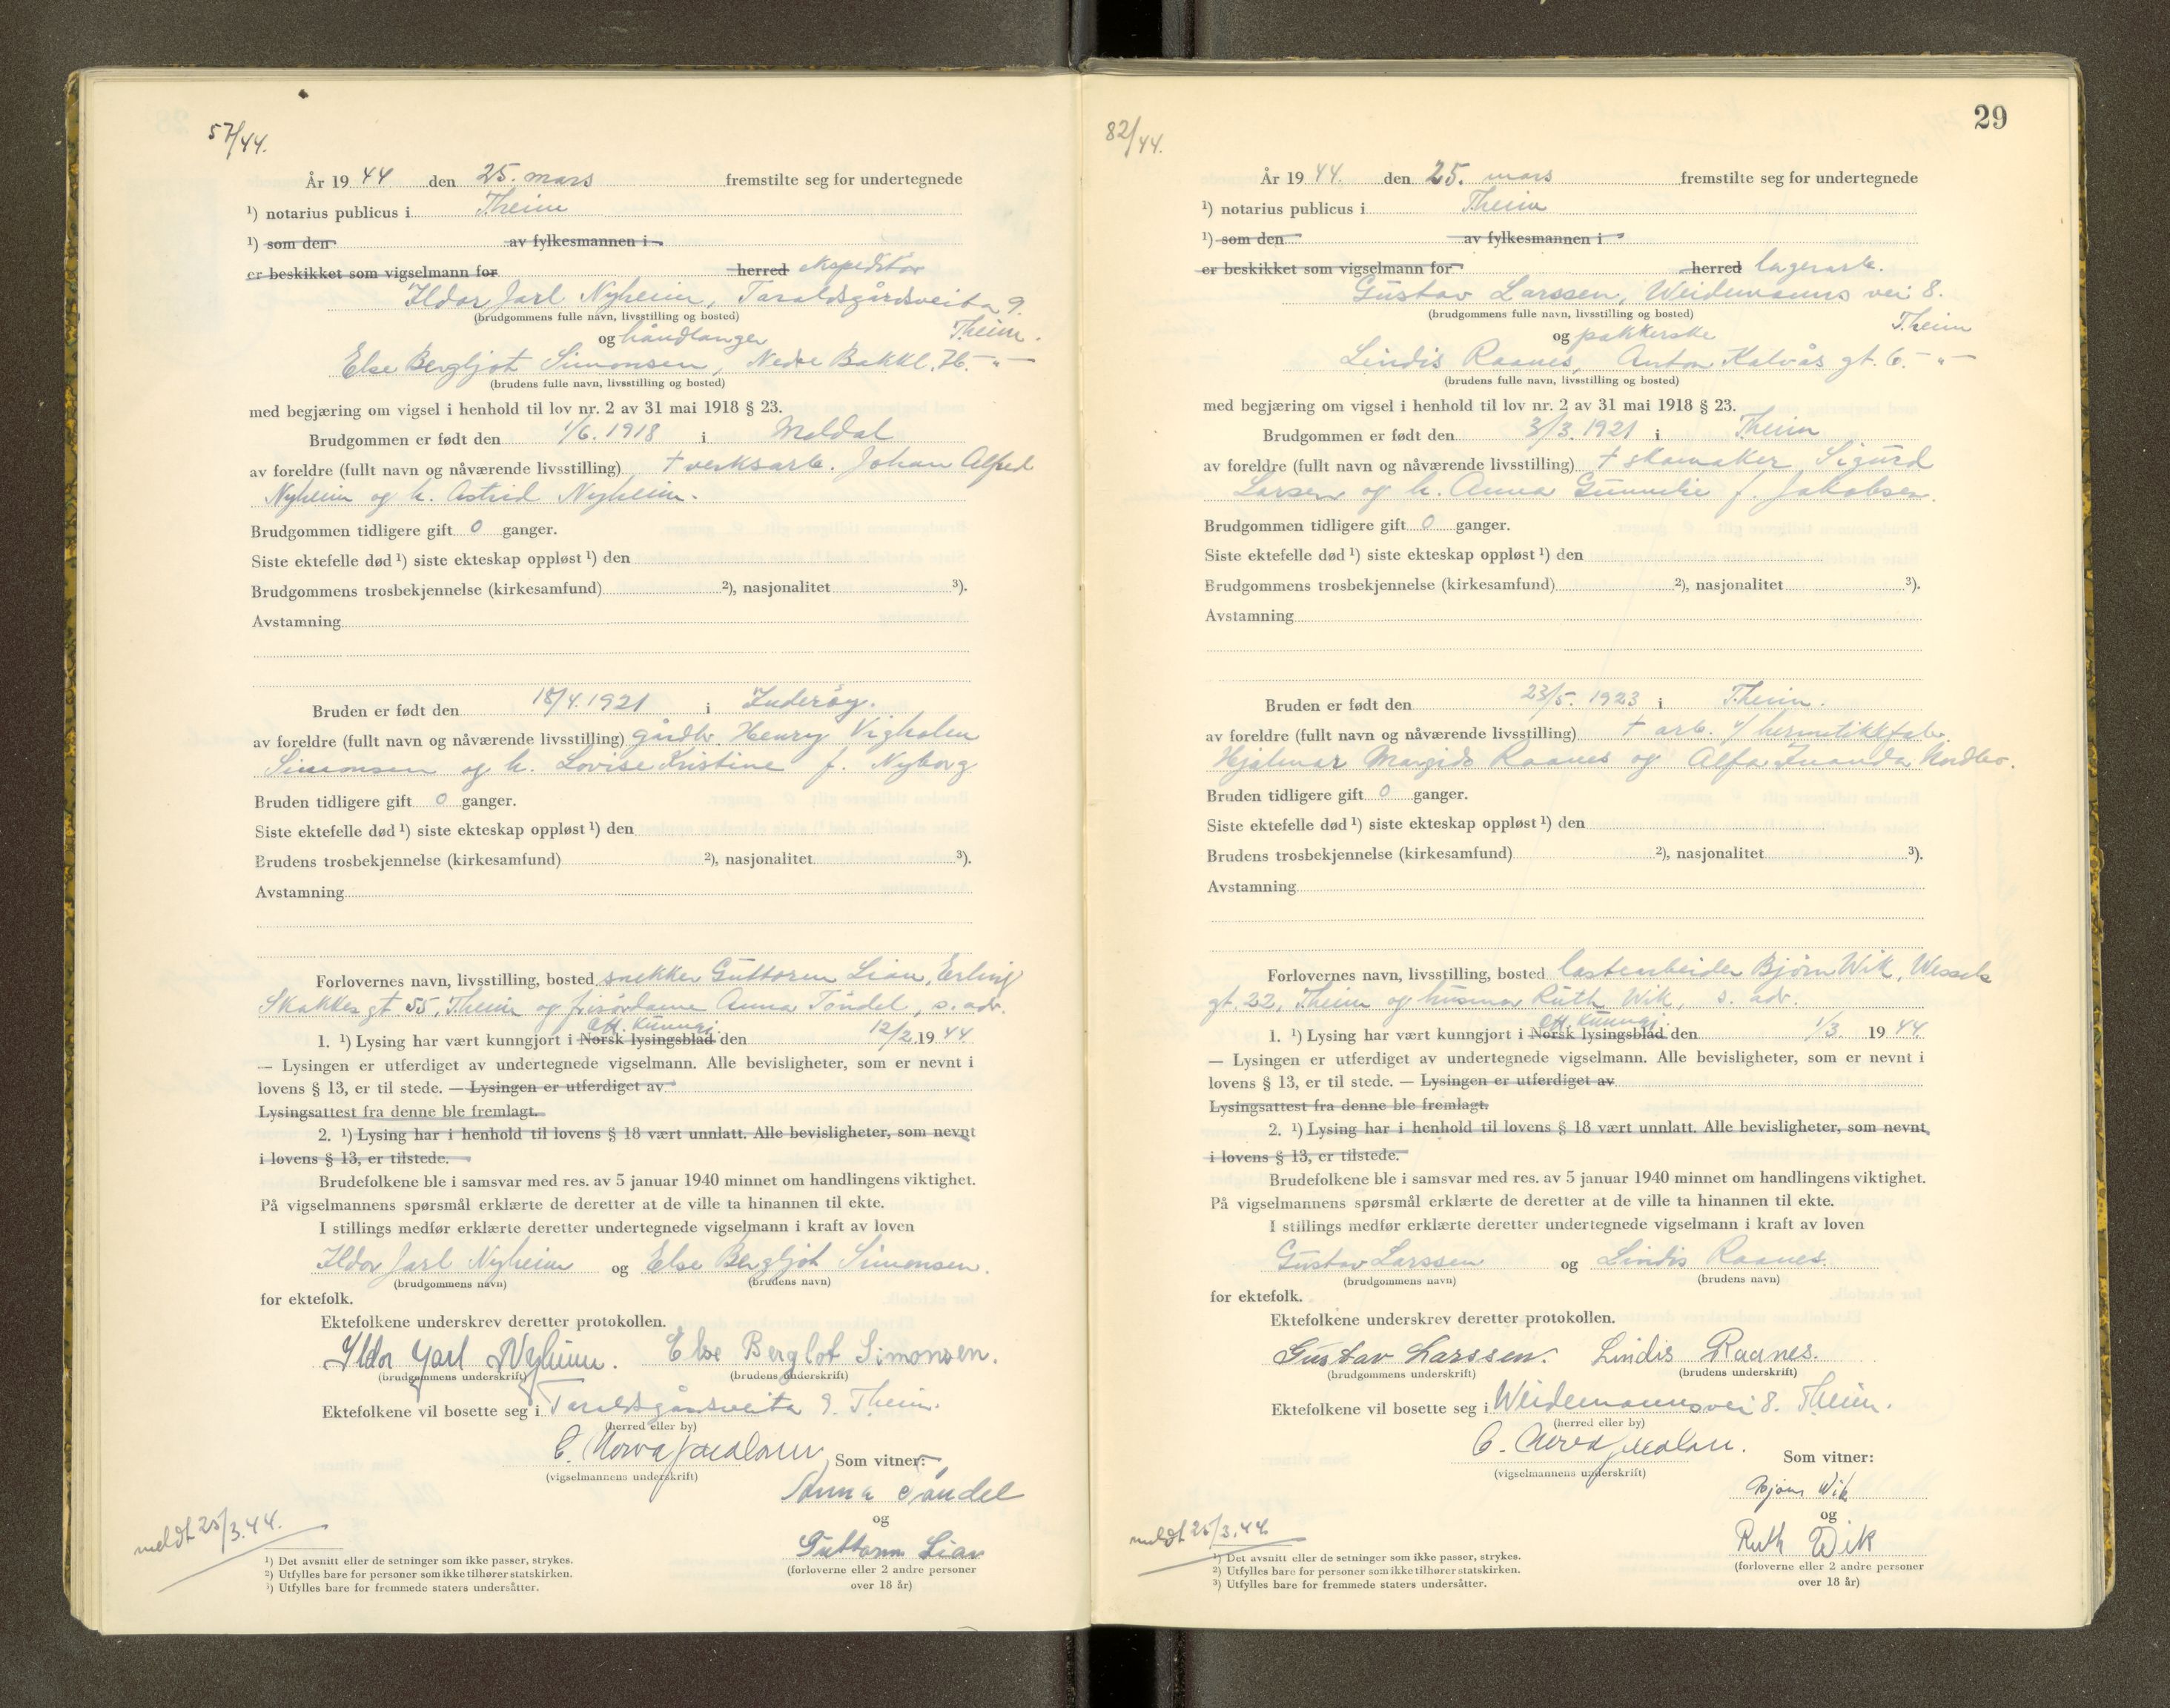 57/44.
År 19 44 den 25. mars fremstilte seg for undertegnede
¹) notarius publicus i T.heim
¹) som den av fylkesmannen i
er beskikket som vigselmann for herred ekspeditør
Ildor Jarl Nyheim, Taraldsgårdsveita 9.
(brudgommens fulle navn, livsstilling og bosted) T.heim.
og håndlanger
Else Bergljot Simonsen, Nedre Bakkl. 76. - " -
(brudens fulle navn, livsstilling og bosted)
med begjæring om vigsel i henhold til lov nr. 2 av 31 mai 1918 § 23.
Brudgommen er født den 1/6. 1918 i Meldal
av foreldre (fullt navn og nåværende livsstilling) † verksarb. Johan Alfred
Nyheim og h. Astrid Nyheim.
Brudgommen tidligere gift 0 ganger.
Siste ektefelle død ¹) siste ekteskap oppløst ¹) den
Brudgommens trosbekjennelse (kirkesamfund) ²), nasjonalitet ³).
Avstamning
Bruden er født den 18/4. 1921 i Inderøy.
av foreldre (fullt navn og nåværende livsstilling) gårdbr. Henry Vigholen
Simonsen og h. Lovise Kristine f. Nyborg
Bruden tidligere gift 0 ganger.
Siste ektefelle død ¹) siste ekteskap oppløst ¹) den
Brudens trosbekjennelse (kirkesamfund) ²), nasjonalitet ³).
Avstamning
Forlovernes navn, livsstilling, bosted snekker Guttorm Lian, Erling
Skakkes gt 55, T.heim og frisørdame Anna Tøndel, s. adr.
Off. kunngj.
1. ¹) Lysing har vært kunngjort i Norsk lysingsblad den 12/2 1944
— Lysingen er utferdiget av undertegnede vigselmann. Alle bevisligheter, som er nevnt i
lovens § 13, er til stede. — Lysingen er utferdiget av
Lysingsattest fra denne ble fremlagt.
2. ¹) Lysing har i henhold til lovens § 18 vært unnlatt. Alle bevisligheter, som nevnt
i lovens § 13, er tilstede.
Brudefolkene ble i samsvar med res. av 5 januar 1940 minnet om handlingens viktighet.
På vigselmannens spørsmål erklærte de deretter at de ville ta hinannen til ekte.
I stillings medfør erklærte deretter undertegnede vigselmann i kraft av loven
Ildor Jarl Nyheim og Else Bergljot Simonsen.
(brudgommens navn) (brudens navn)
for ektefolk.
Ektefolkene underskrev deretter protokollen.
Ildor Jarl Nyheim. Else Berglot Simonsen.
(brudgommens underskrift) (brudens underskrift)
Ektefolkene vil bosette seg i Taraldsgårdsveita 9. T.heim.
(herred eller by)
Som vitner:
(vigselmannens underskrift)
Anna Tøndel
og
Guttorm Lian
(forloverne eller 2 andre personer
over 18 år)
meldt 25/3.44.
¹) Det avsnitt eller de setninger som ikke passer, strykes.
²) Utfylles bare for personer som ikke tilhører statskirken.
³) Utfylles bare for fremmede staters undersåtter.
29
82/44.
År 19 44. den 25. mars fremstilte seg for undertegnede
¹) notarius publicus i T.heim
¹) som den av fylkesmannen i
er beskikket som vigselmann for herred lagerarb.
Gustav Larssen, Weidemanns vei 8.
(brudgommens fulle navn, livsstilling og bosted) T.heim
og pakkerske
Lindis Raanes, Anton Kalvås gt. 6. - " -
(brudens fulle navn, livsstilling og bosted)
med begjæring om vigsel i henhold til lov nr. 2 av 31 mai 1918 § 23.
Brudgommen er født den 3/3. 1921 i T.heim
av foreldre (fullt navn og nåværende livsstilling) † skomaker Sigurd
Larsen og h. Anna Gunnelie f. Jakobsen.
Brudgommen tidligere gift 0 ganger.
Siste ektefelle død ¹) siste ekteskap oppløst ¹) den
Brudgommens trosbekjennelse (kirkesamfund) ²), nasjonalitet ³).
Avstamning
Bruden er født den 23/5. 1923 i T.heim.
av foreldre (fullt navn og nåværende livsstilling) † arb. v/ hermetikkfabr.
Hjalmar Margido Raanes og Alfa Inanda Nordbo.
Bruden tidligere gift 0 ganger.
Siste ektefelle død ¹) siste ekteskap oppløst ¹) den
Brudens trosbekjennelse (kirkesamfund) ²), nasjonalitet ³).
Avstamning
Forlovernes navn, livsstilling, bosted lastearbeider Bjørn Wik, Wessels
gt. 22, T.heim og husmor Ruth Wik, s. adr.
Off. kunngj.
1. ¹) Lysing har vært kunngjort i Norsk lysingsblad den 1/3. 1944.
— Lysingen er utferdiget av undertegnede vigselmann. Alle bevisligheter, som er nevnt i
lovens § 13, er til stede. — Lysingen er utferdiget av
Lysingsattest fra denne ble fremlagt.
2. ¹) Lysing har i henhold til lovens § 18 vært unnlatt. Alle bevisligheter, som nevnt
i lovens § 13, er tilstede.
Brudefolkene ble i samsvar med res. av 5 januar 1940 minnet om handlingens viktighet.
På vigselmannens spørsmål erklærte de deretter at de ville ta hinannen til ekte.
I stillings medfør erklærte deretter undertegnede vigselmann i kraft av loven
Gustav Larssen og Lindis Raanes.
(brudgommens navn) (brudens navn)
for ektefolk.
Ektefolkene underskrev deretter protokollen.
Gustav Larssen. Lindis Raanes.
(brudgommens underskrift) (brudens underskrift)
Ektefolkene vil bosette seg i Weidemannsvei 8. T.heim.
(herred eller by)
Som vitner:
(vigselmannens underskrift)
Bjørn Wik
og
Ruth Wik
(forloverne eller 2 andre personer
over 18 år)
meldt 25/3.44.
¹) Det avsnitt eller de setninger som ikke passer, strykes.
²) Utfylles bare for personer som ikke tilhører statskirken.
³) Utfylles bare for fremmede staters undersåtter.